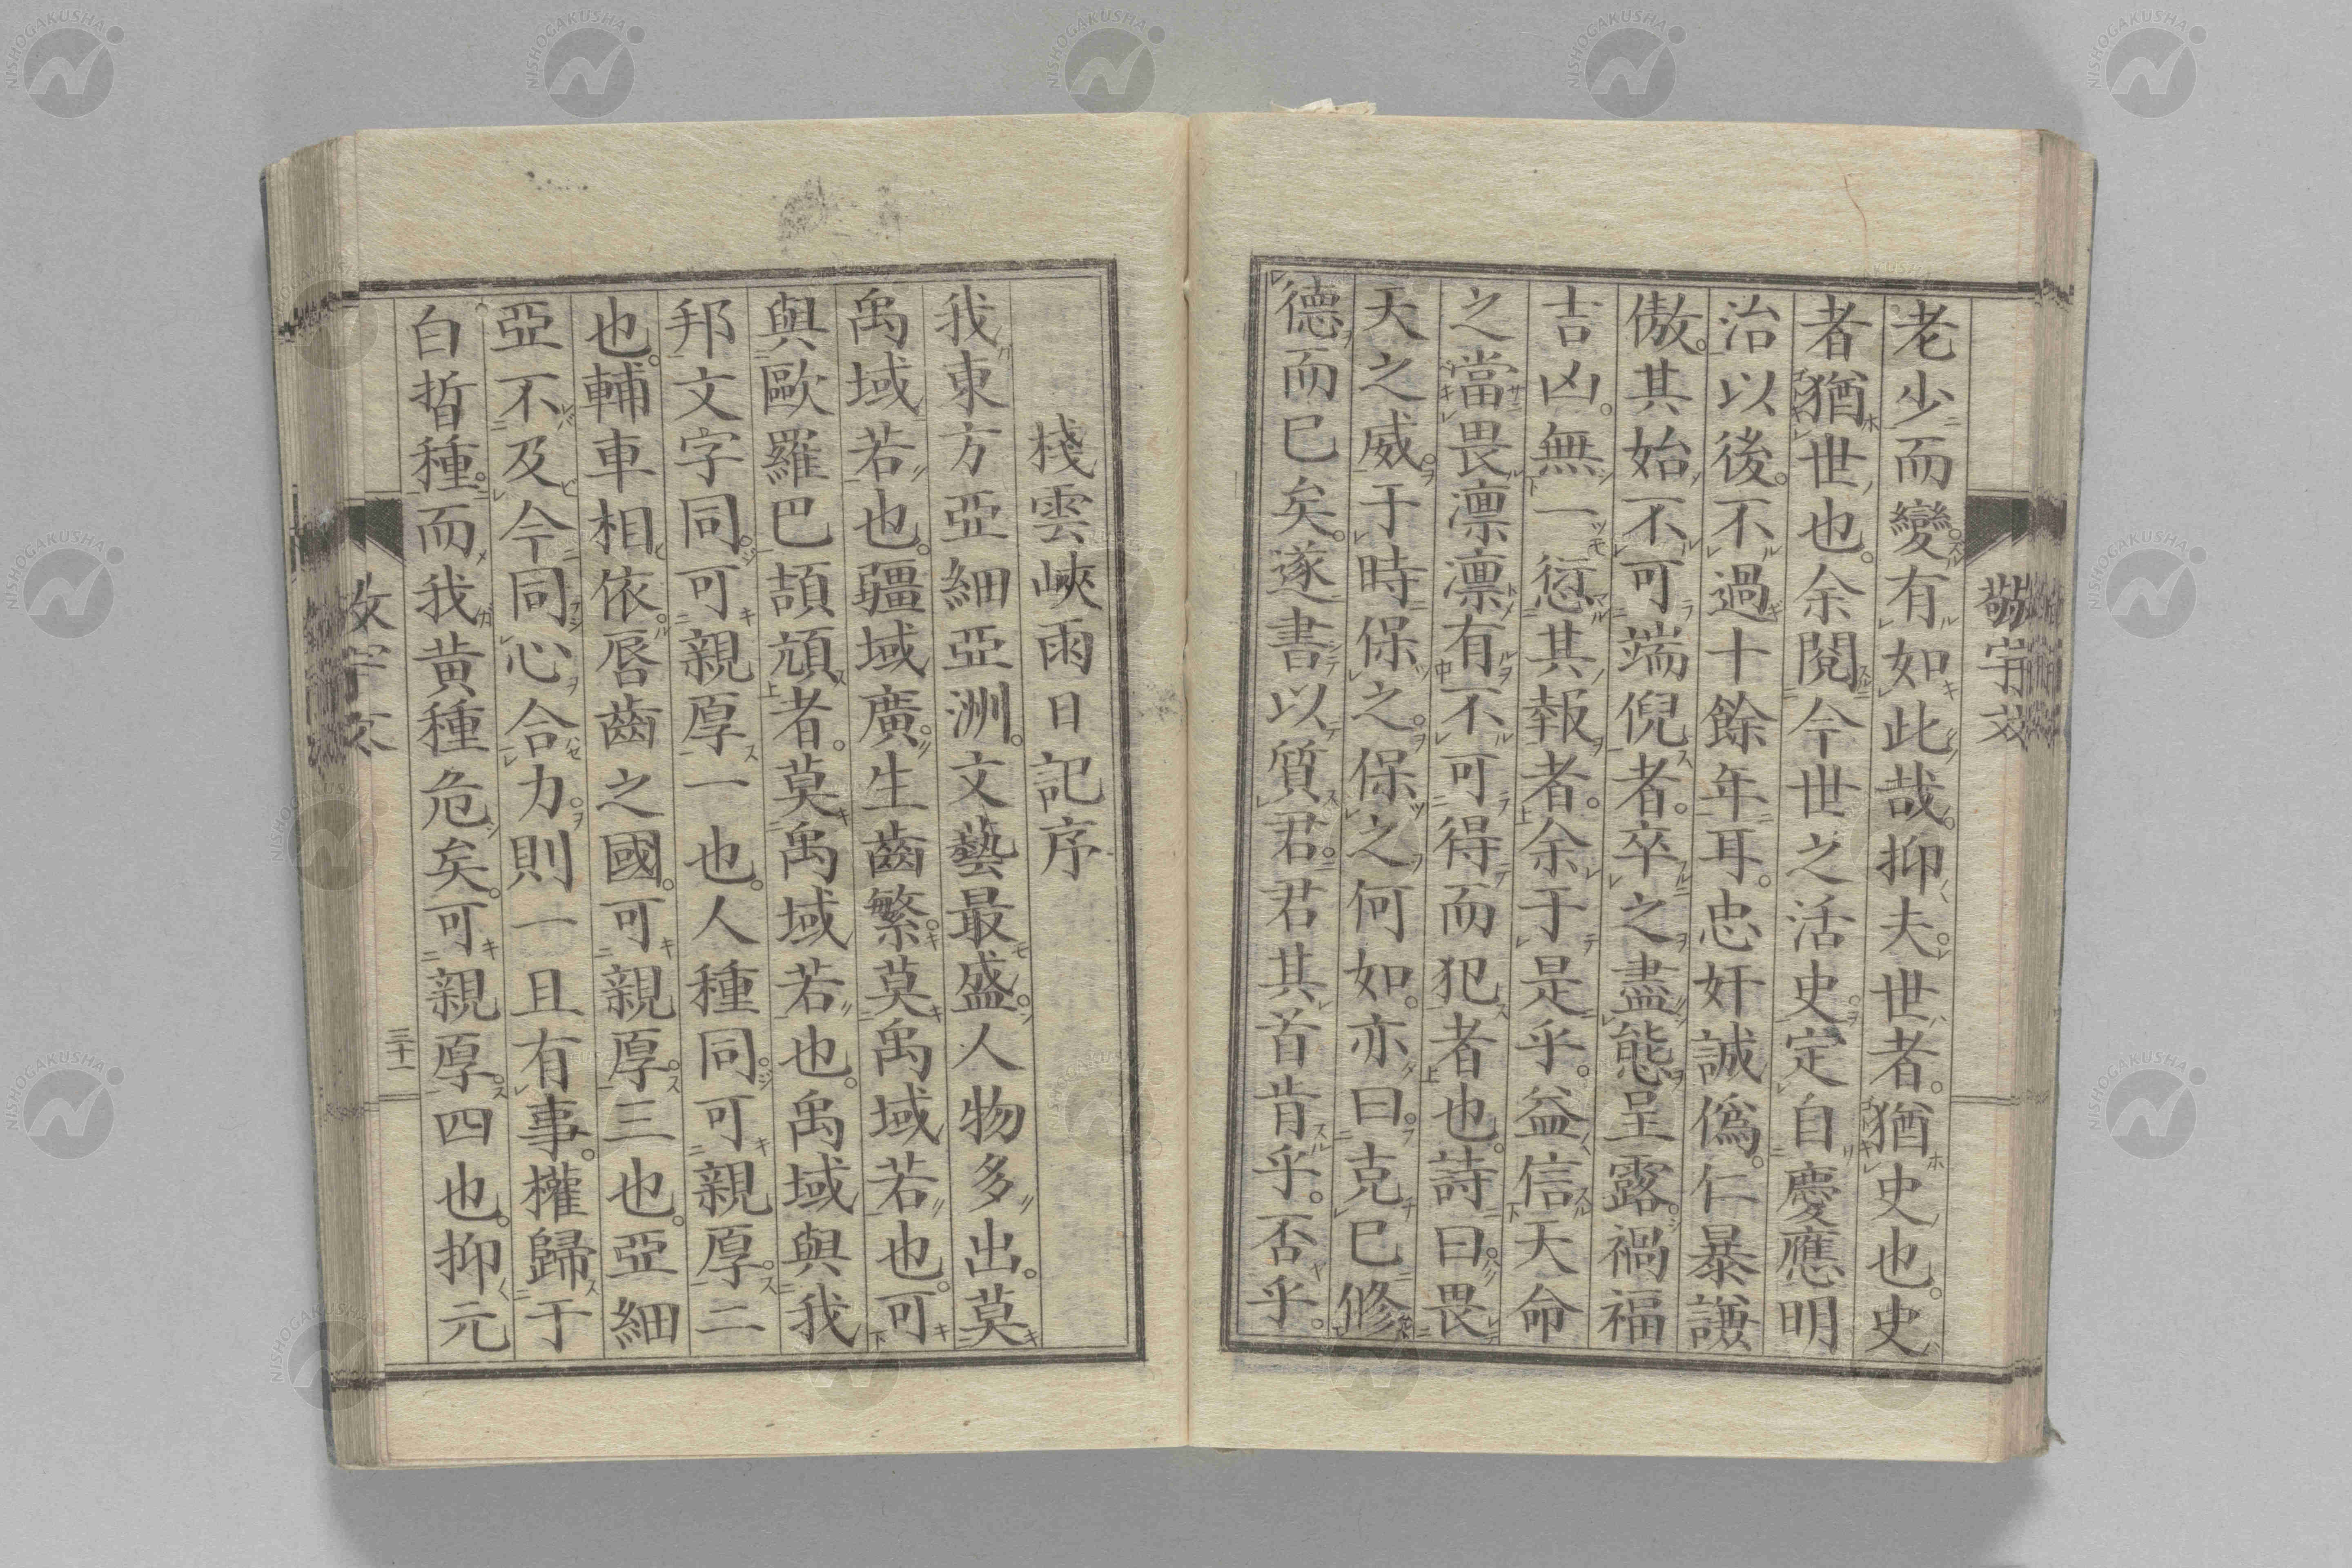 敬宇文
老少而變。有如此哉。抑夫世者。猶史也。史
者猶世也。余閱今世之活史。定自慶應明
治以後。不過十餘年耳。忠奸誠僞。仁暴謙
傲。其始不可端倪者。卒之盡態呈露。禍福
吉凶。無一愆其報者。余于是乎。益信天命
之當畏凛凛有不可得而犯者也。詩曰。畏
天之威。于時保之。保之何如。亦曰。克己修
德而已矣。遂書以質君。君其首肯乎。否乎。
棧雲峽雨日記序
我東方亞細亞洲。文藝最盛。人物多出。莫
禹域若也。疆域廣。生齒繁。莫禹域若也。可
與歐羅巴頡頏者。莫禹域若也。禹域與我
邦文字同。可親厚一也。人種同。可親厚。二
也。輔車相依。唇齒之國。可親厚。三也。亞細
亞不及今同心合力。則一旦有事。權歸于
白晳種。而我黄種危矣。可親厚。四也。抑元
敬宇文
三十一
NISHOGAKUSHA